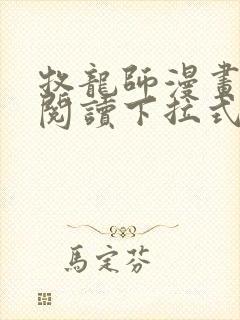 牧龍師漫畫
閱讀下拉式
馬定芬